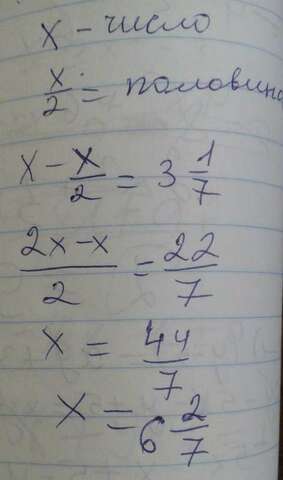 x - число
x/2 = половина
x - x/2 = 3 1/7
2x-x/2 = 22/7
x = 44/7
x = 6 2/7